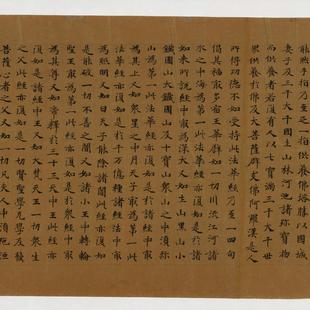 能然手指乃至足一指供養佛塔勝以國城
妻子及三千大千國土山林河池諸珍寶物
而供養者若復有人以七寶滿三千大千世
界供養於佛及大菩薩辟支佛阿羅漢是人
所得功德不如受持此法華經乃至一四句
偈其福最多宿王華譬如一切川流江河諸
水之中海為第一此法華經亦復如是於諸
如來所說經中最為深大又如土山黑山小
鐵圍山大鐵圍山及十寶山眾山之中須彌
山為第一此法華經亦復如是於諸經中最
為其上又如眾星之中月天子最為第一此
法華經亦復如是於千万億種諸經法中最
為照明又如日天子能除諸闇此經亦復如
是能破一切不善之闇又如諸小王中轉輪
聖王最為第一此經亦復如是於眾經中最
為其尊又如帝釋於三十三天中王此經亦
復如是諸經中王又如大梵天王一切眾生
之父此經亦復如是一切賢聖學无學及發
菩薩心者之父又如一切凡夫人中須陀洹